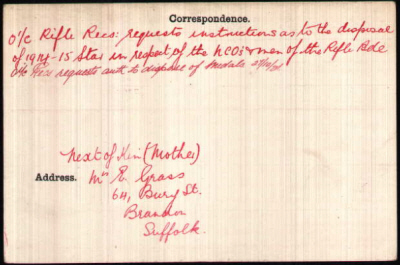 Correspondence.
O/C Rifle Recs: requests instructions as to the disposal
of 1914-15 Star in respect of the NCOs & men of the Rifle Bde
O/C requests auth to dispose of Medals
Next of Kin (Mother)
Address. Mrs E. Grass
64, Bury St.
Brandon
Suffolk.